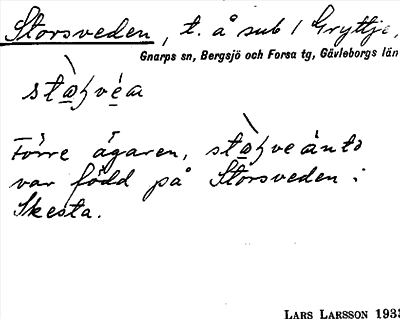 Storsveden, t. å sub 1 Gryttje,
Gnarps sn, Bergsjö och Forsa tg, Gävleborgs län
Förre ägaren,
var född på Storsveden i
Skesta.
LARS LARSSON 1933